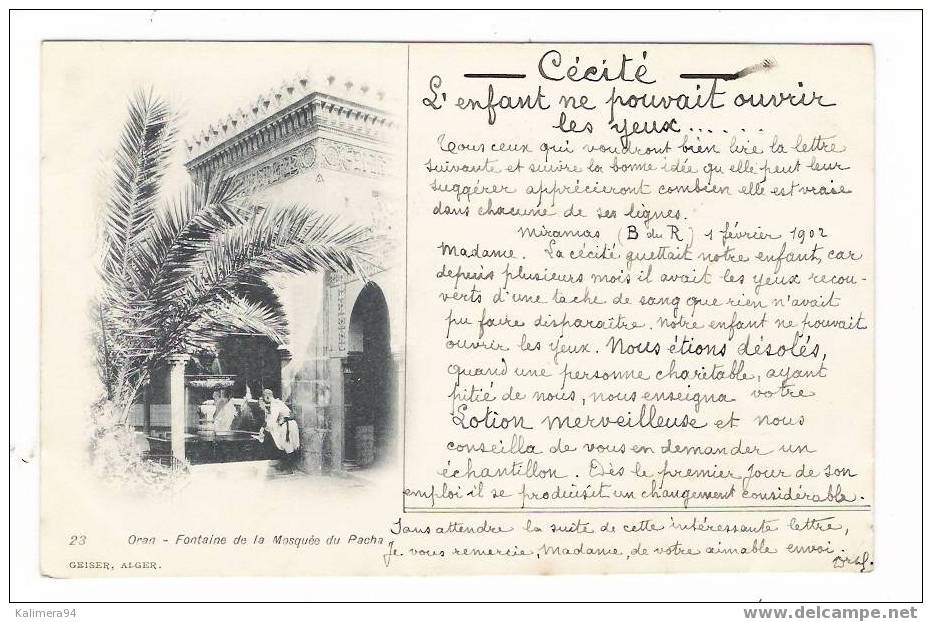 — Cécité —
L'enfant ne pouvait ouvrir
les yeux......
Tous ceux qui voudront bien lire la lettre
suivante et suivre la bonne idée qu'elle peut leur
suggérer apprécieront combien elle est vraie
dans chacune de ses lignes.
Miramas (B du R) 1 février 1902
Madame. La cécité guettait notre enfant, car
depuis plusieurs mois il avait les yeux recou-
verts d'une tache de sang que rien n'avait
pu faire disparaître. Notre enfant ne pouvait
ouvrir les yeux. Nous étions désolés,
quand une personne charitable, ayant
pitié de nous, nous enseigna votre
Lotion merveilleuse et nous
conseilla de vous en demander un
échantillon. Dès le premier jour de son
emploi il se produisit un changement considérable.
Sans attendre la suite de cette intéressante lettre,
je vous remercie, Madame, de votre aimable envoi.
23 Oran - Fontaine de la Mosquée du Pacha
GEISER, ALGER.
Kalimera94
www.delcampe.net